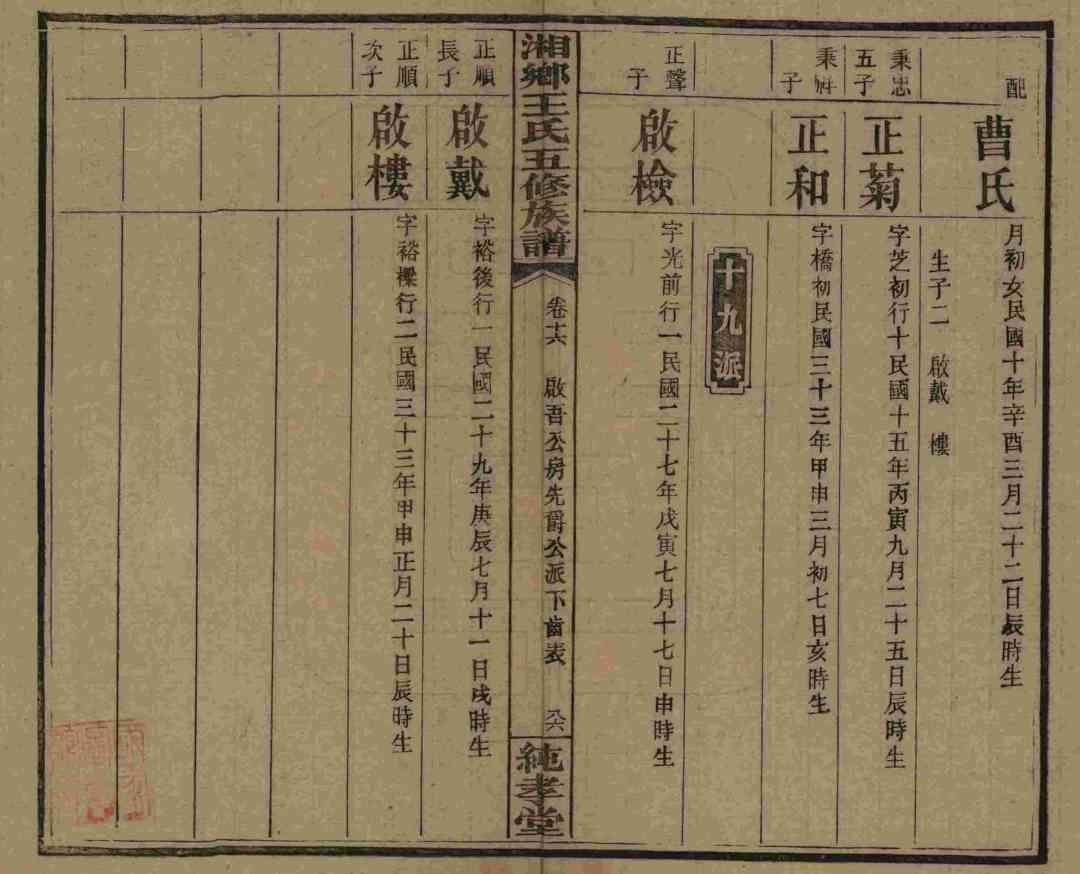 配
曹氏
月初女民國十年辛酉三月二十二日辰時生
生子二　啟戴　樓
秉忠
五子
正菊
字芝初行十民國十五年丙寅九月二十五日辰時生
秉
子
正和
字橋初民國三十三年甲申三月初七日亥時生
十九派
正聲
子
啟檢
字光前行一民國二十七年戊寅七月十七日申時生
湘鄉王氏五修族譜
卷十六　啟吾公房先爵公派下齒表　八六
純孝堂
正順
長子
啟戴
字裕後行一民國二十九年庚辰七月十一日戌時生
正順
次子
啟樓
字裕樑行二民國三十三年甲申正月二十日辰時生